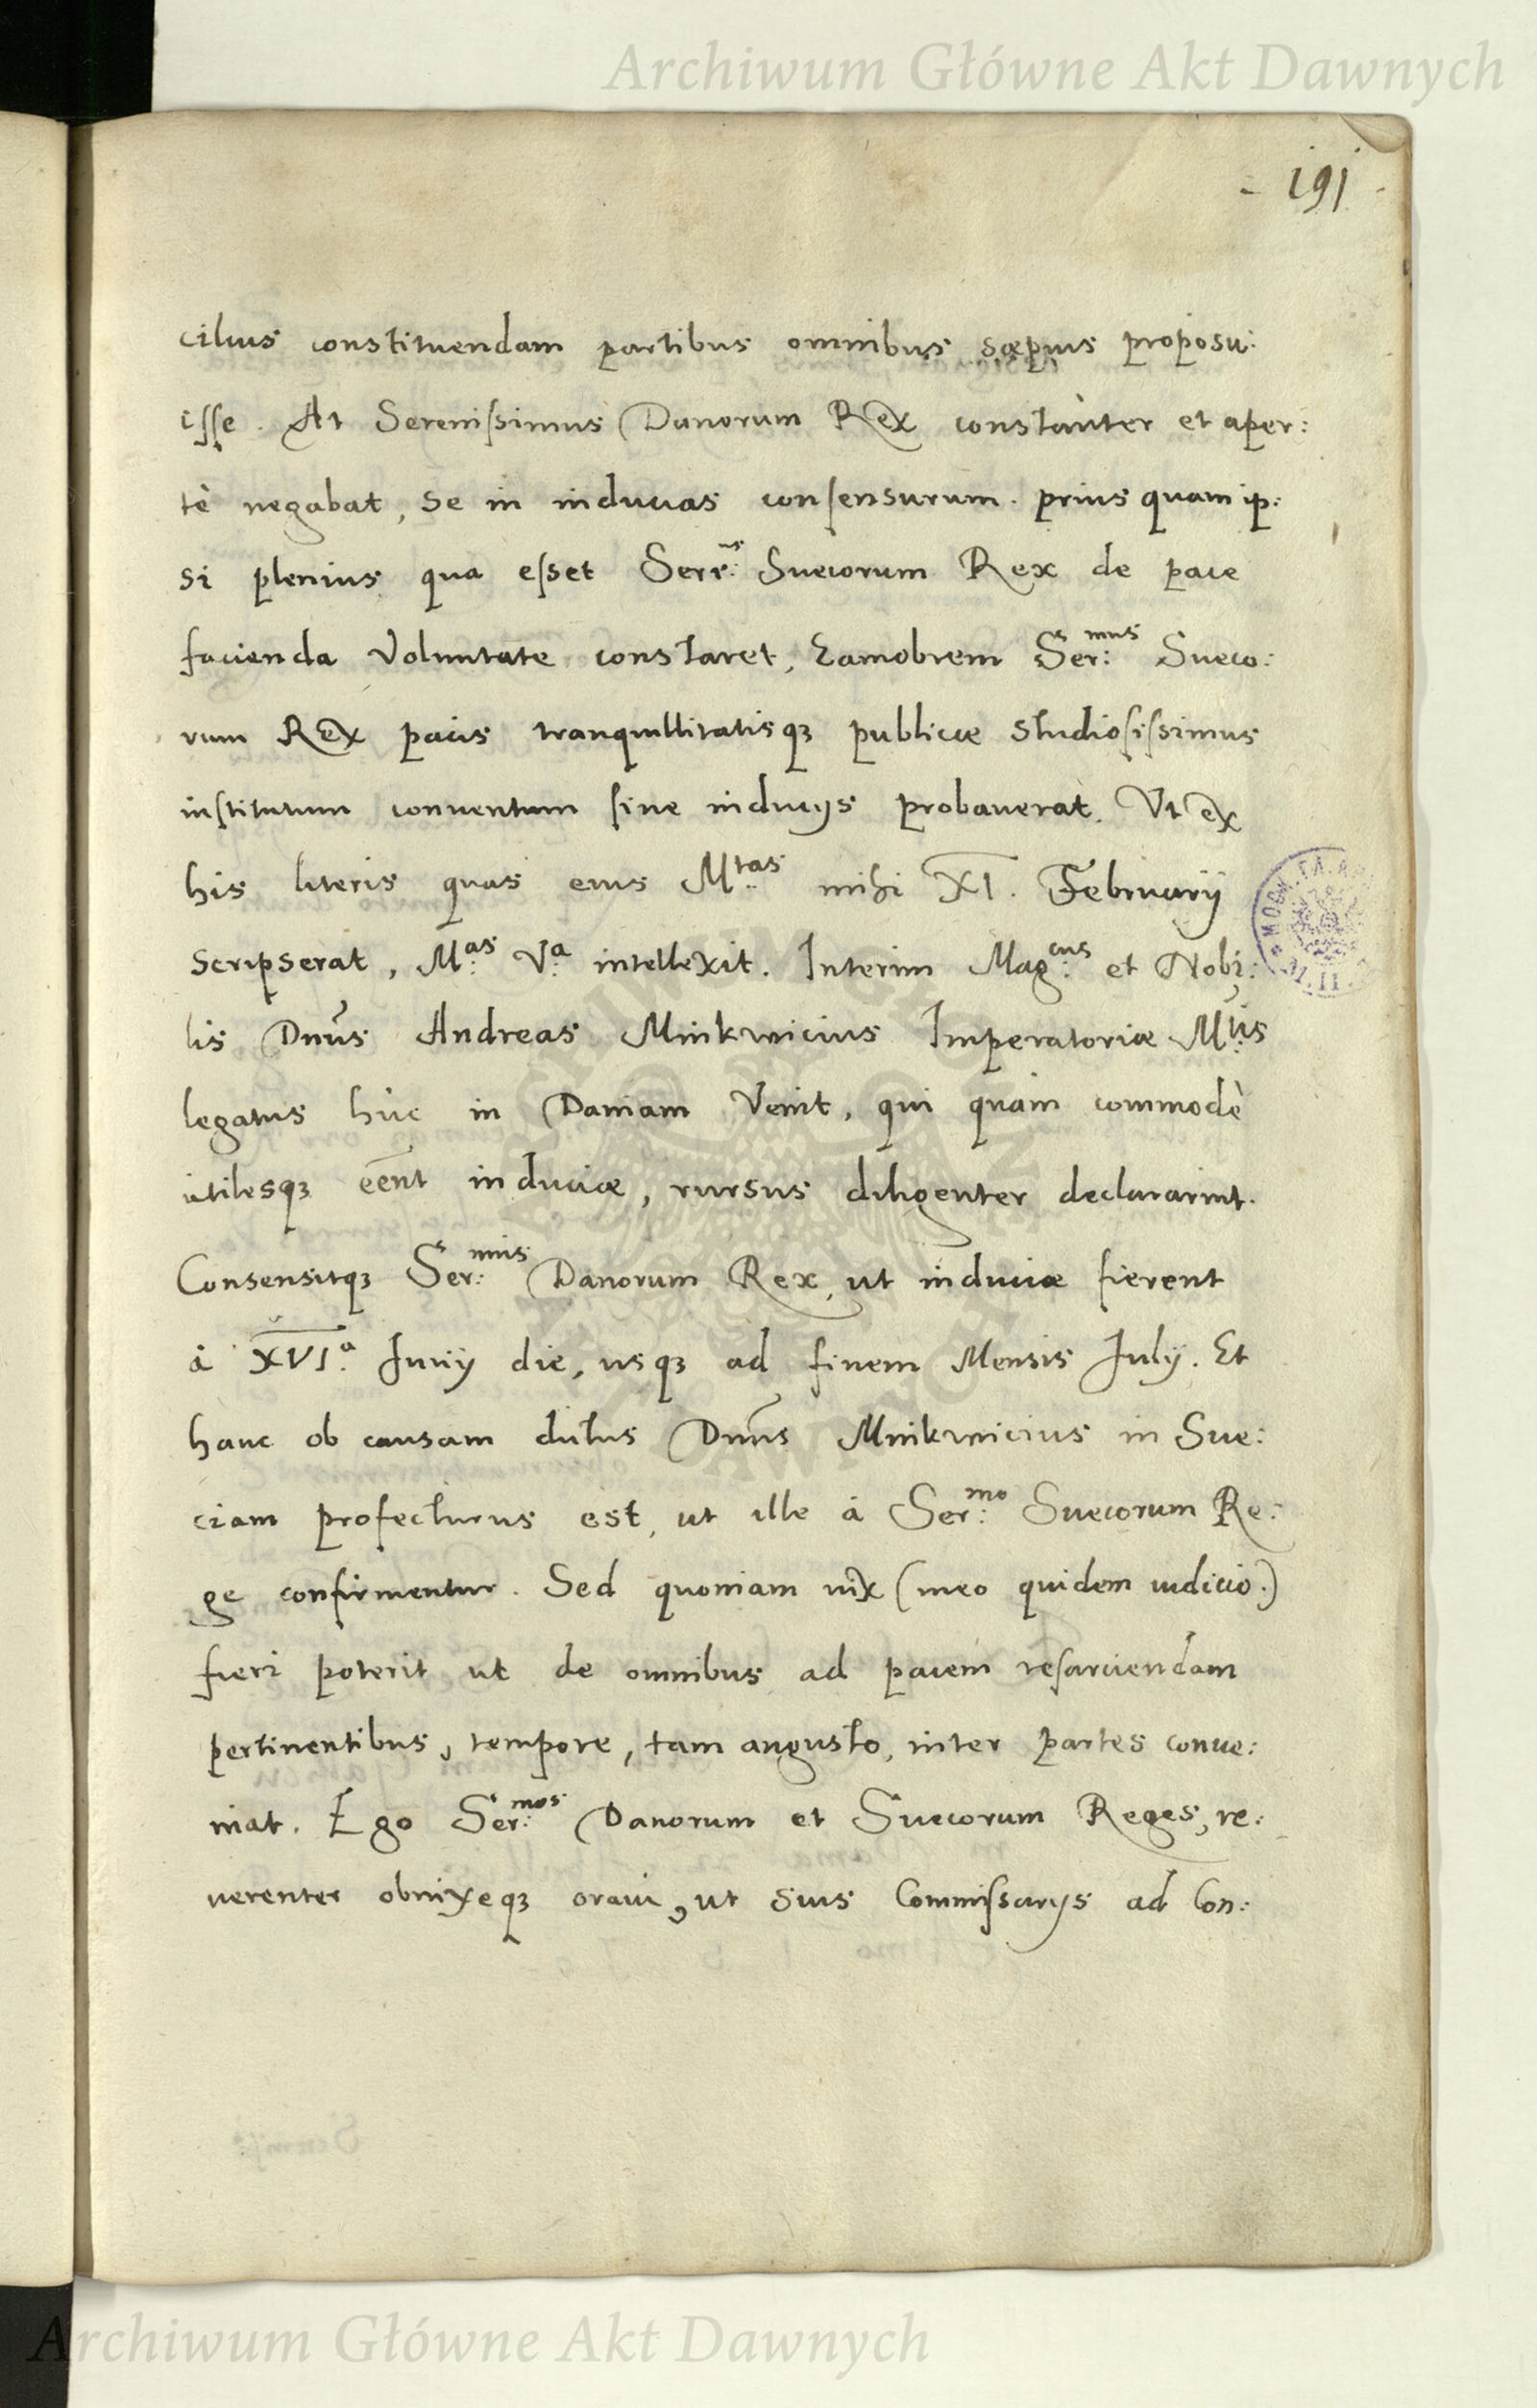 Archiwum Główne Akt Dawnych
- 191 -
cilius constituendam partibus omnibus sæpius proposu:
isse. At Serenissimus Danorum Rex constanter et aper:
tè negabat, se in inducias consensurum. prius quam ip:
si plenius qua esset Serr:us Suecorum Rex de pace
facienda Voluntate constaret, Eamobrem Ser:mus Sueco:
rum Rex pacis tranquillitatisq3 publicæ studiosissimus
institutum conuentum sine inducijs probauerat. Vt ex
his literis quas eius Mtas mihi XI. February
scripserat, M:as V:a intellexit. Interim Mag:cus et Nobi:
lis Dnus Andreas Minkwicius Imperatoriæ Mtis
legatus hùc in Daniam Venit, qui quam commodè
utilesq3 eent induciæ, rursus diligenter declararint.
Consensitq3 Ser:mus Danorum Rex, ut induciæ fierent
à XVI.a Junij die, usq3 ad finem Mensis July. Et
hanc ob causam dictus Dnus Minkwicius in Sue:
ciam profecturus est, ut illæ à Ser:mo Suecorum Re:
ge confirmentur. Sed quoniam uix (meo quidem iudicio.)
fieri poterit ut de omnibus ad pacem resarciendam
pertinentibus, tempore, tam angusto, inter partes conue:
niat. Ego Ser:mos Danorum et Suecorum Reges, re:
uerenter obnixeq3 oraui, ut suis Commissarijs ad Con:
Archiwum Główne Akt Dawnych